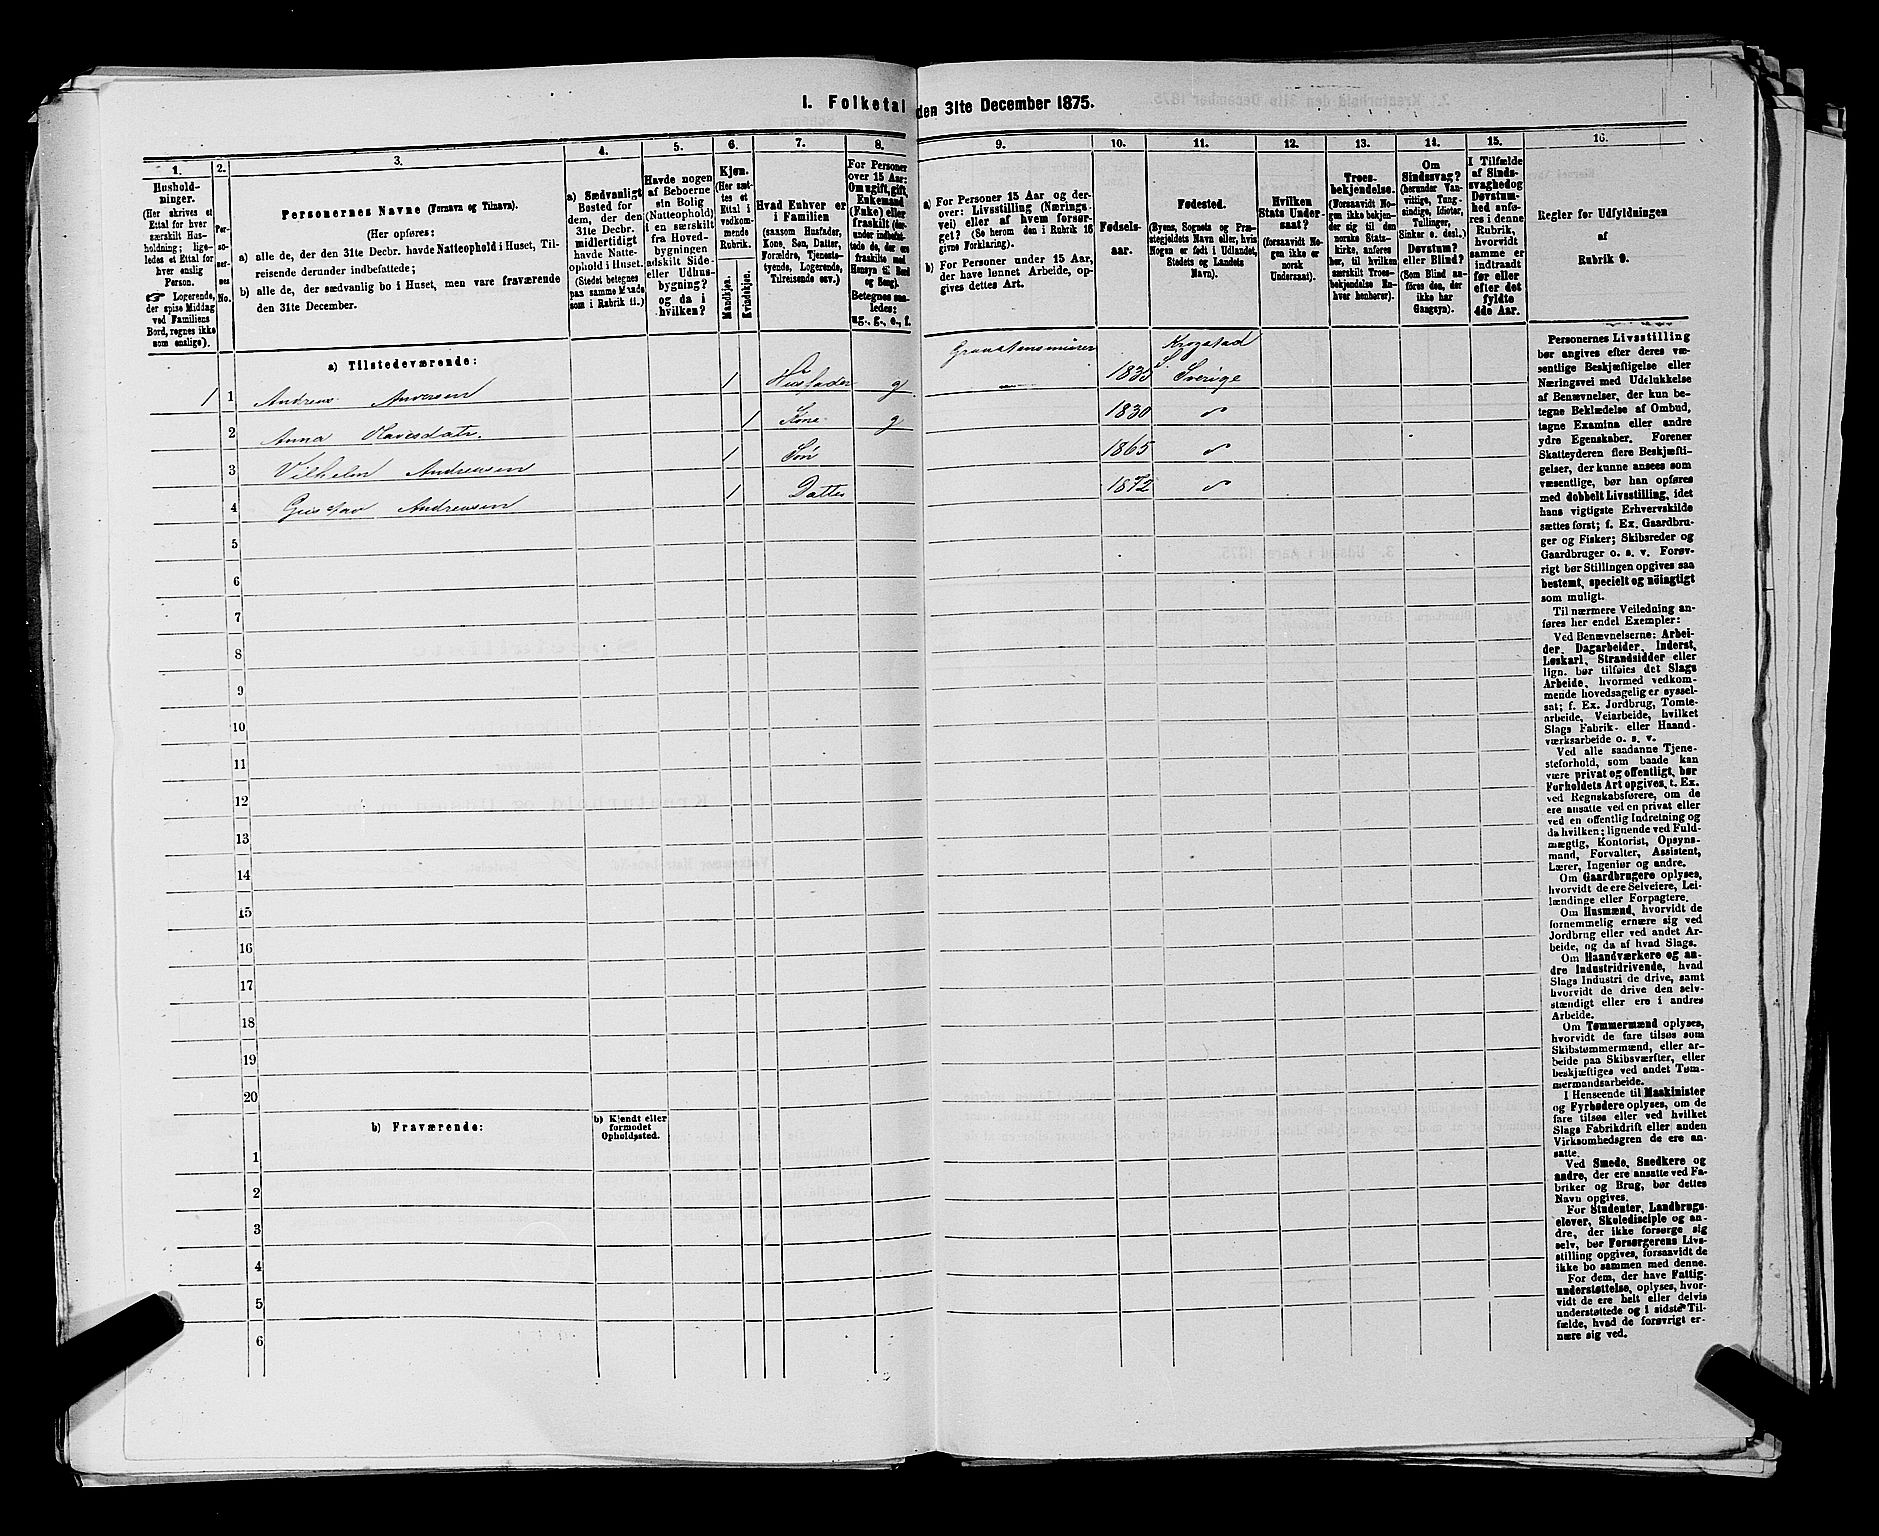 I. Folketal den 31te December 1875.
1. 2. 3. 4. 5. 6. 7. 8. 9. 10. 11. 12. 13. 14. 15. 16.
Hushold-
ninger.
(Her skrives et
Ettal for hver
særskilt Hus-
holdning; lige-
ledes et Ettal for
hver enslig
Person.
☞ Logerende,
der spise Middag
ved Familiens
Bord, regnes ikke
som enslige).
Per-
so-
ner-
nes
No.
Personernes Navne (Fornavn og Tilnavn).
(Her opføres:
a) alle de, der den 31te Decbr. havde Natteophold i Huset, Til-
reisende derunder indbefattede;
b) alle de, der sædvanlig bo i Huset, men vare fraværende
den 31te December.
a) Sædvanligt
Bosted for
dem, der den
31te Decbr.
midlertidigt
havde Natte-
ophold i Huset.
(Stedet betegnes
paa samme Maade
som i Rubrik 11.)
Havde nogen
af Beboerne
sin Bolig
(Natteophold)
i en særskilt
fra Hoved-
bygningen
adskilt Side-
eller Udhus-
bygning?
og da i
hvilken?
Kjøn.
(Her sæt-
tes et
Ettal i
vedkom-
mende
Rubrik.
Mandkjøn.
Kvindekjøn.
Hvad Enhver er
i Familien
(saasom Husfader,
Kone, Søn, Datter,
Forældre, Tjeneste-
tyende, Logerende,
Tilreisende osv.)
For Personer
over 15 Aar:
Om ugift, gift,
Enkemand
(Enke) eller
fraskilt (der-
under indbefat-
tede de, der ere
fraskilte med
Hensyn til Bord
og Seng).
Betegnes saa-
ledes:
ug., g., e., f.
a) For Personer 15 Aar og der-
over: Livsstilling (Nærings-
vei) eller af hvem forsør-
get? (Se herom den i Rubrik 16
givne Forklaring).
b) For Personer under 15 Aar,
der have lønnet Arbeide, op-
gives dettes Art.
Fødsels-
aar.
Fødested.
(Byens, Sognets og Præ-
stegjeldets Navn eller, hvis
Nogen er født i Udlandet,
Stedets og Landets
Navn).
Hvilken
Stats Under-
saat?
(forsaavidt No-
gen ikke er
norsk
Undersaat).
Troes-
bekjendelse.
(Forsaavidt No-
gen ikke bekjen-
der sig til den
norske Stats-
kirke, anføres
her, til hvilken
særskilt Troes-
bekjendelse En-
hver henhører).
Om
Sindssvag?
(herunder Van-
vittige, Tung-
sindige, Idioter,
Tullinger,
Sinker o. desl.)
Døvstum?
eller Blind?
(Som Blind an-
føres den, der
ikke har
Gangsyn).
I Tilfælde
af Sinds-
svaghed og
Døvstum-
hed anfø-
res i denne
Rubrik,
hvorvidt
samme er
indtraadt
før eller
efter det
fyldte
4de Aar.
Regler for Udfyldningen
af
Rubrik 9.
a) Tilstedeværende:
Krogstad
1 1 Andreas Andersen 1 Husfader g. 1835 Sverige
2 Anna 1 Kone g 1830 "
3 Vilhelm Andreasen 1 Søn 1865 "
4 Gustav Andreasen 1 Datter 1872 "
5
6
7
8
9
10
11
12
13
14
15
16
17
18
19
20
b) Fraværende:
b) Kjendt eller
formodet
Opholdssted.
1
2
3
4
5
6
Personernes Livsstilling
bør angives efter deres væ-
sentlige Beskjæftigelse eller
Næringsvei med Udelukkelse
af Benævnelser, der kun be-
tegne Beklædelse af Ombud,
tagne Examina eller andre
ydre Egenskaber. Forener
Skatteyderen flere Beskjæfti-
gelser, der kunne ansees som
væsentlige, bør han opføres
med dobbelt Livsstilling, idet
hans vigtigste Erhvervskilde
sættes først; f. Ex. Gaardbru-
ger og Fisker; Skibsreder og
Gaardbruger o. s. v. Forøv-
rigt bør Stillingen opgives saa
bestemt, specielt og nöiagtigt
som muligt.
Til nærmere Veiledning an-
føres her endel Exempler:
Ved Benævnelserne: Arbei-
der, Dagarbeider, Inderst,
Løskarl, Strandsidder eller
lign. bør tilføies det Slags
Arbeide, hvormed vedkom-
mende hovedsagelig er syssel-
sat; f. Ex. Jordbrug, Tomte-
arbeide, Veiarbeide, hvilket
Slags Fabrik- eller Haand-
værksarbeide o. s. v.
Ved alle saadanne Tjene-
steforhold, som baade kan
være privat og offentligt, bør
Forholdets Art opgives, t. Ex.
ved Regnskabsførere, om de
ere ansatte ved en privat eller
ved en offentlig Indretning og
da hvilken; lignende ved Fuld-
mægtig, Kontorist, Opsyns-
mand, Forvalter, Assistent,
Lærer, Ingeniør og andre.
Om Gaardbrugere oplyses,
hvorvidt de ere Selveiere, Lei-
lændinge eller Forpagtere.
Om Husmænd, hvorvidt de
fornemmelig ernære sig ved
Jordbrug eller ved andet Ar-
beide, og da af hvad Slags.
Om Haandværkere og an-
dre Industridrivende, hvad
Slags Industri de drive, samt
hvorvidt de drive den selv-
stændigt eller ere i andres
Arbeide.
Om Tømmermænd oplyses,
hvorvidt de fare tilsøs som
Skibstømmermænd, eller ar-
beide paa Skibsværfter, eller
beskjæftiges ved andet Tøm-
mermandsarbeide.
I Henseende til Maskinister
og Fyrbødere oplyses, om de
fare tilsøs eller ved hvilket
Slags Fabrikdrift eller anden
Virksomhedsgren de ere an-
satte.
Ved Smede, Snedkere og
andre, der ere ansatte ved Fa-
briker og Brug, bør dettes
Navn opgives.
For Studenter, Landbrugs-
elever, Skoledisciple og an-
dre, der ikke forsørge sig
selv, bør Forsørgerens Livs-
stilling opgives, forsaavidt de
ikke bo sammen med denne.
For dem, der have Fattig-
understøttelse, oplyses, hvor-
vidt de ere helt eller delvis
understøttede og i sidste Til-
fælde, hvad de forøvrigt er-
nære sig ved.